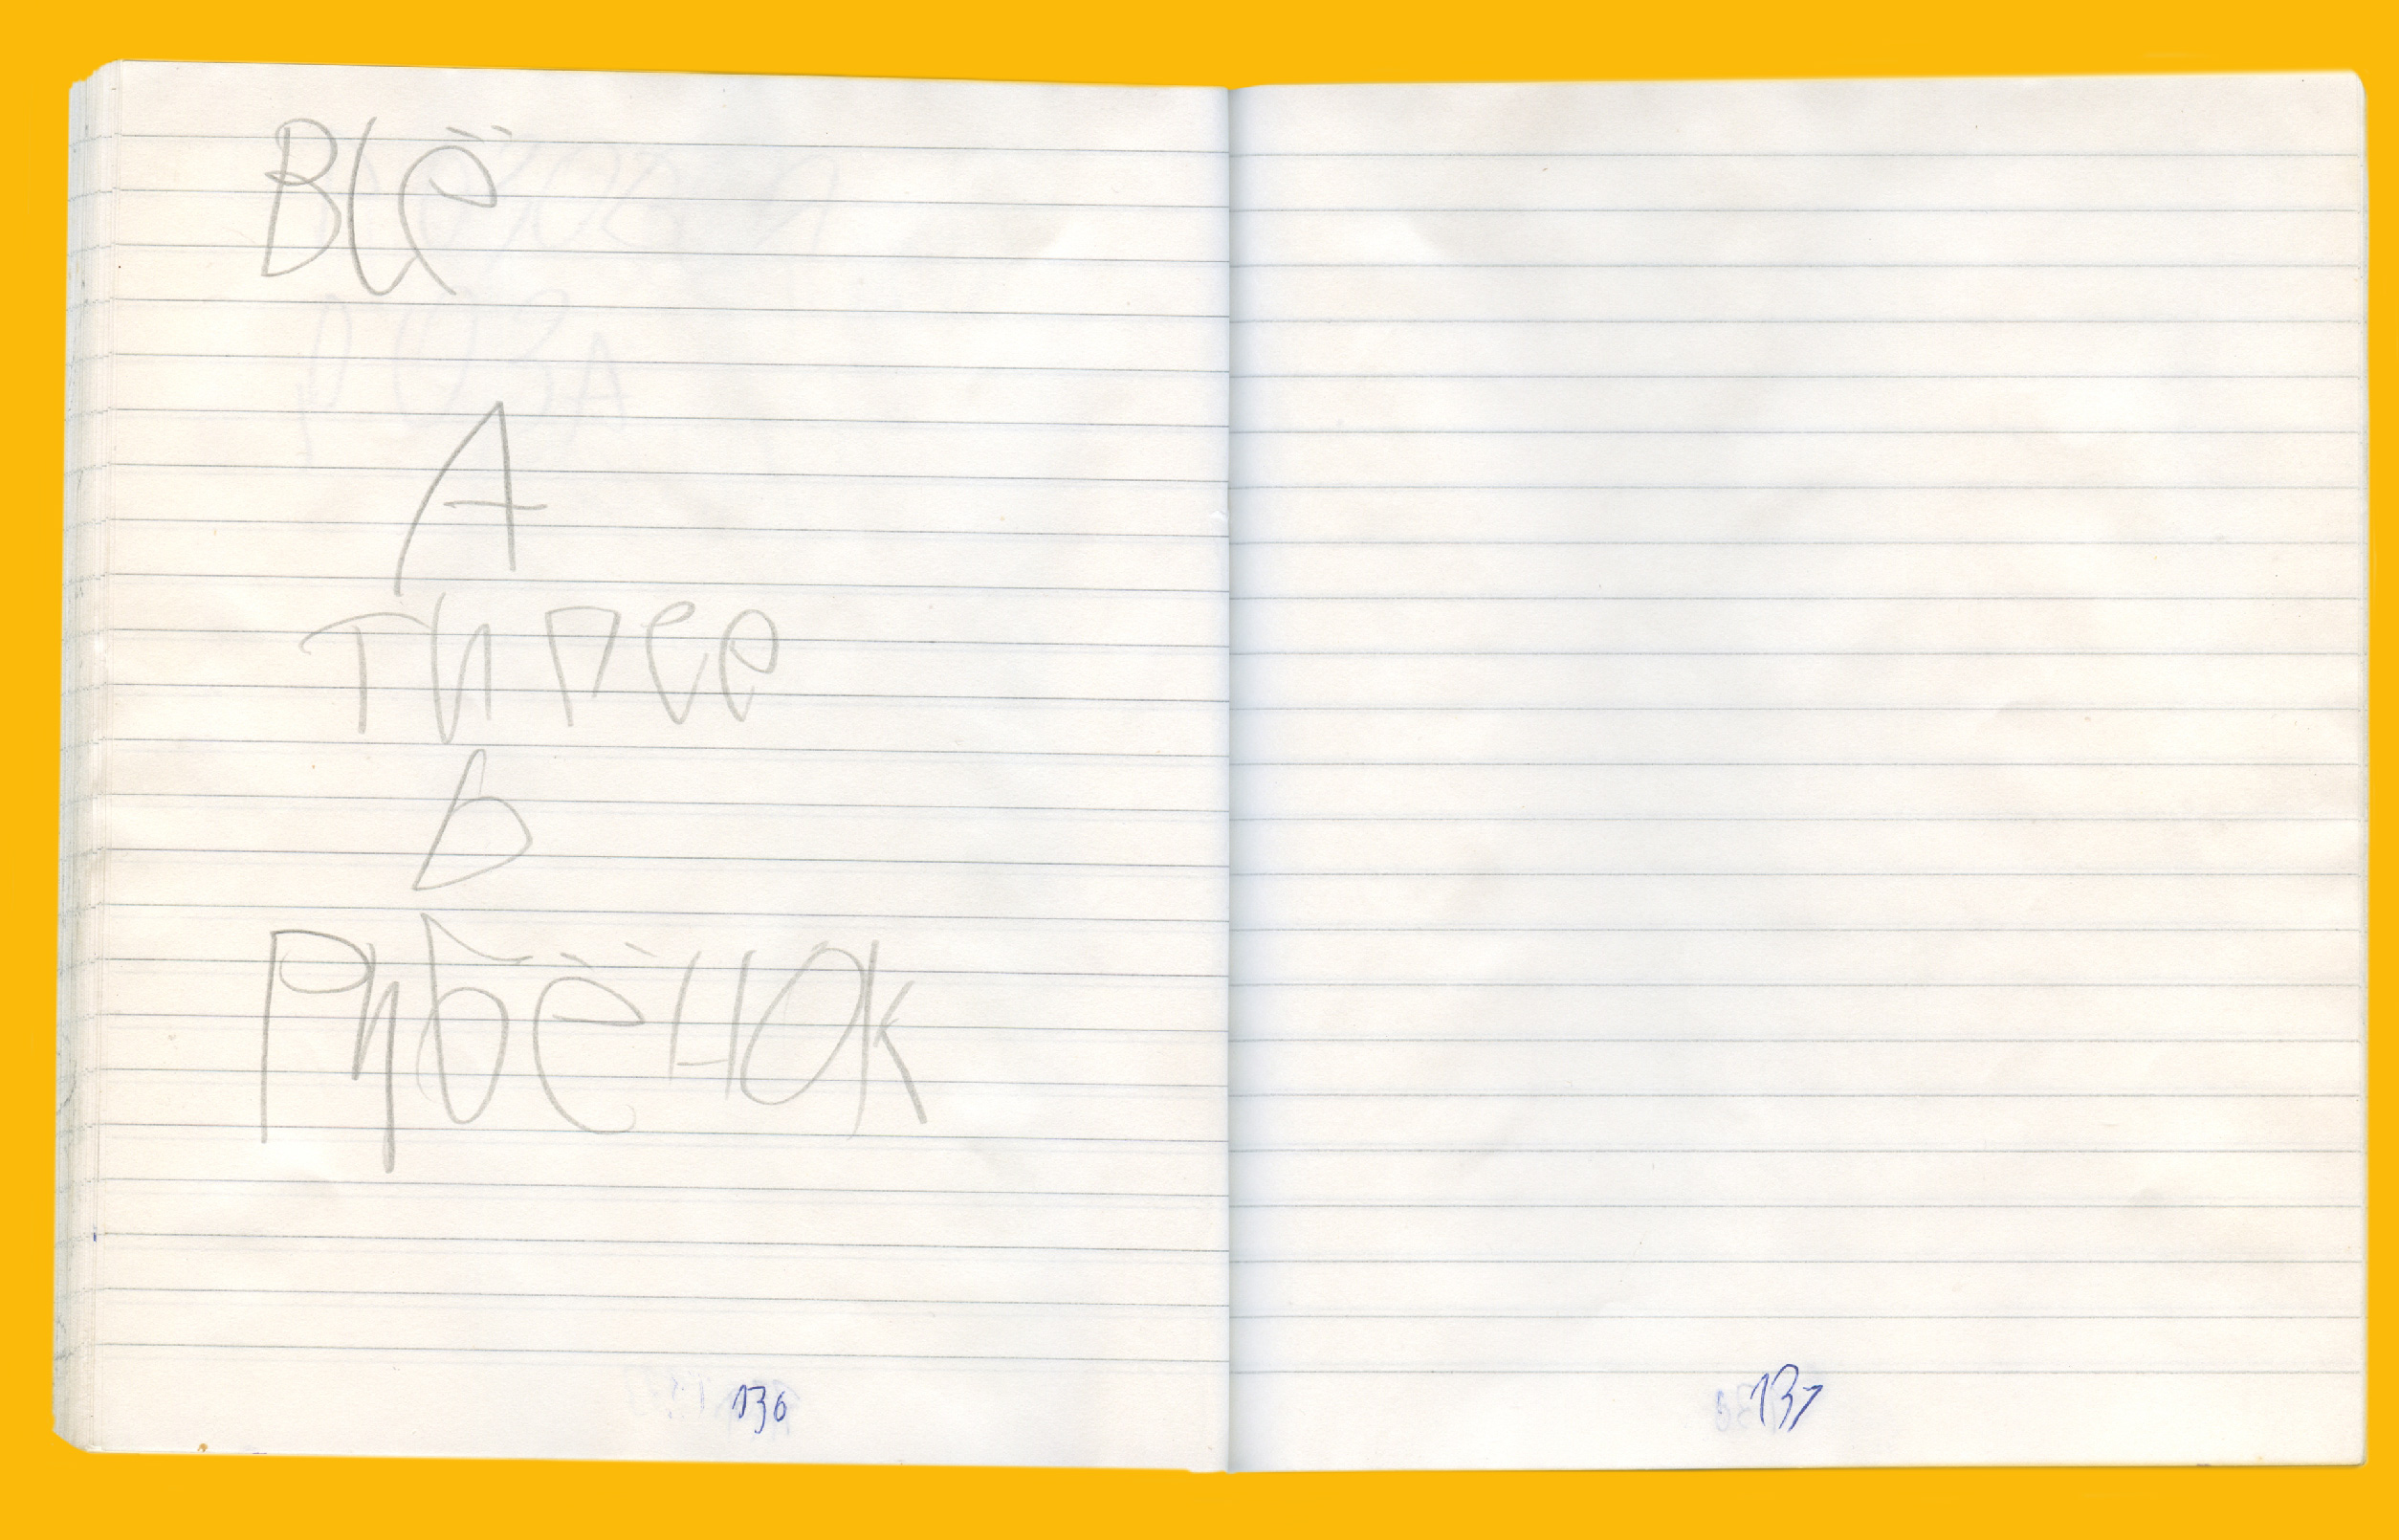 ВСЁ
А
ТИПЕР
Ь
РИБЁНОК
136
137